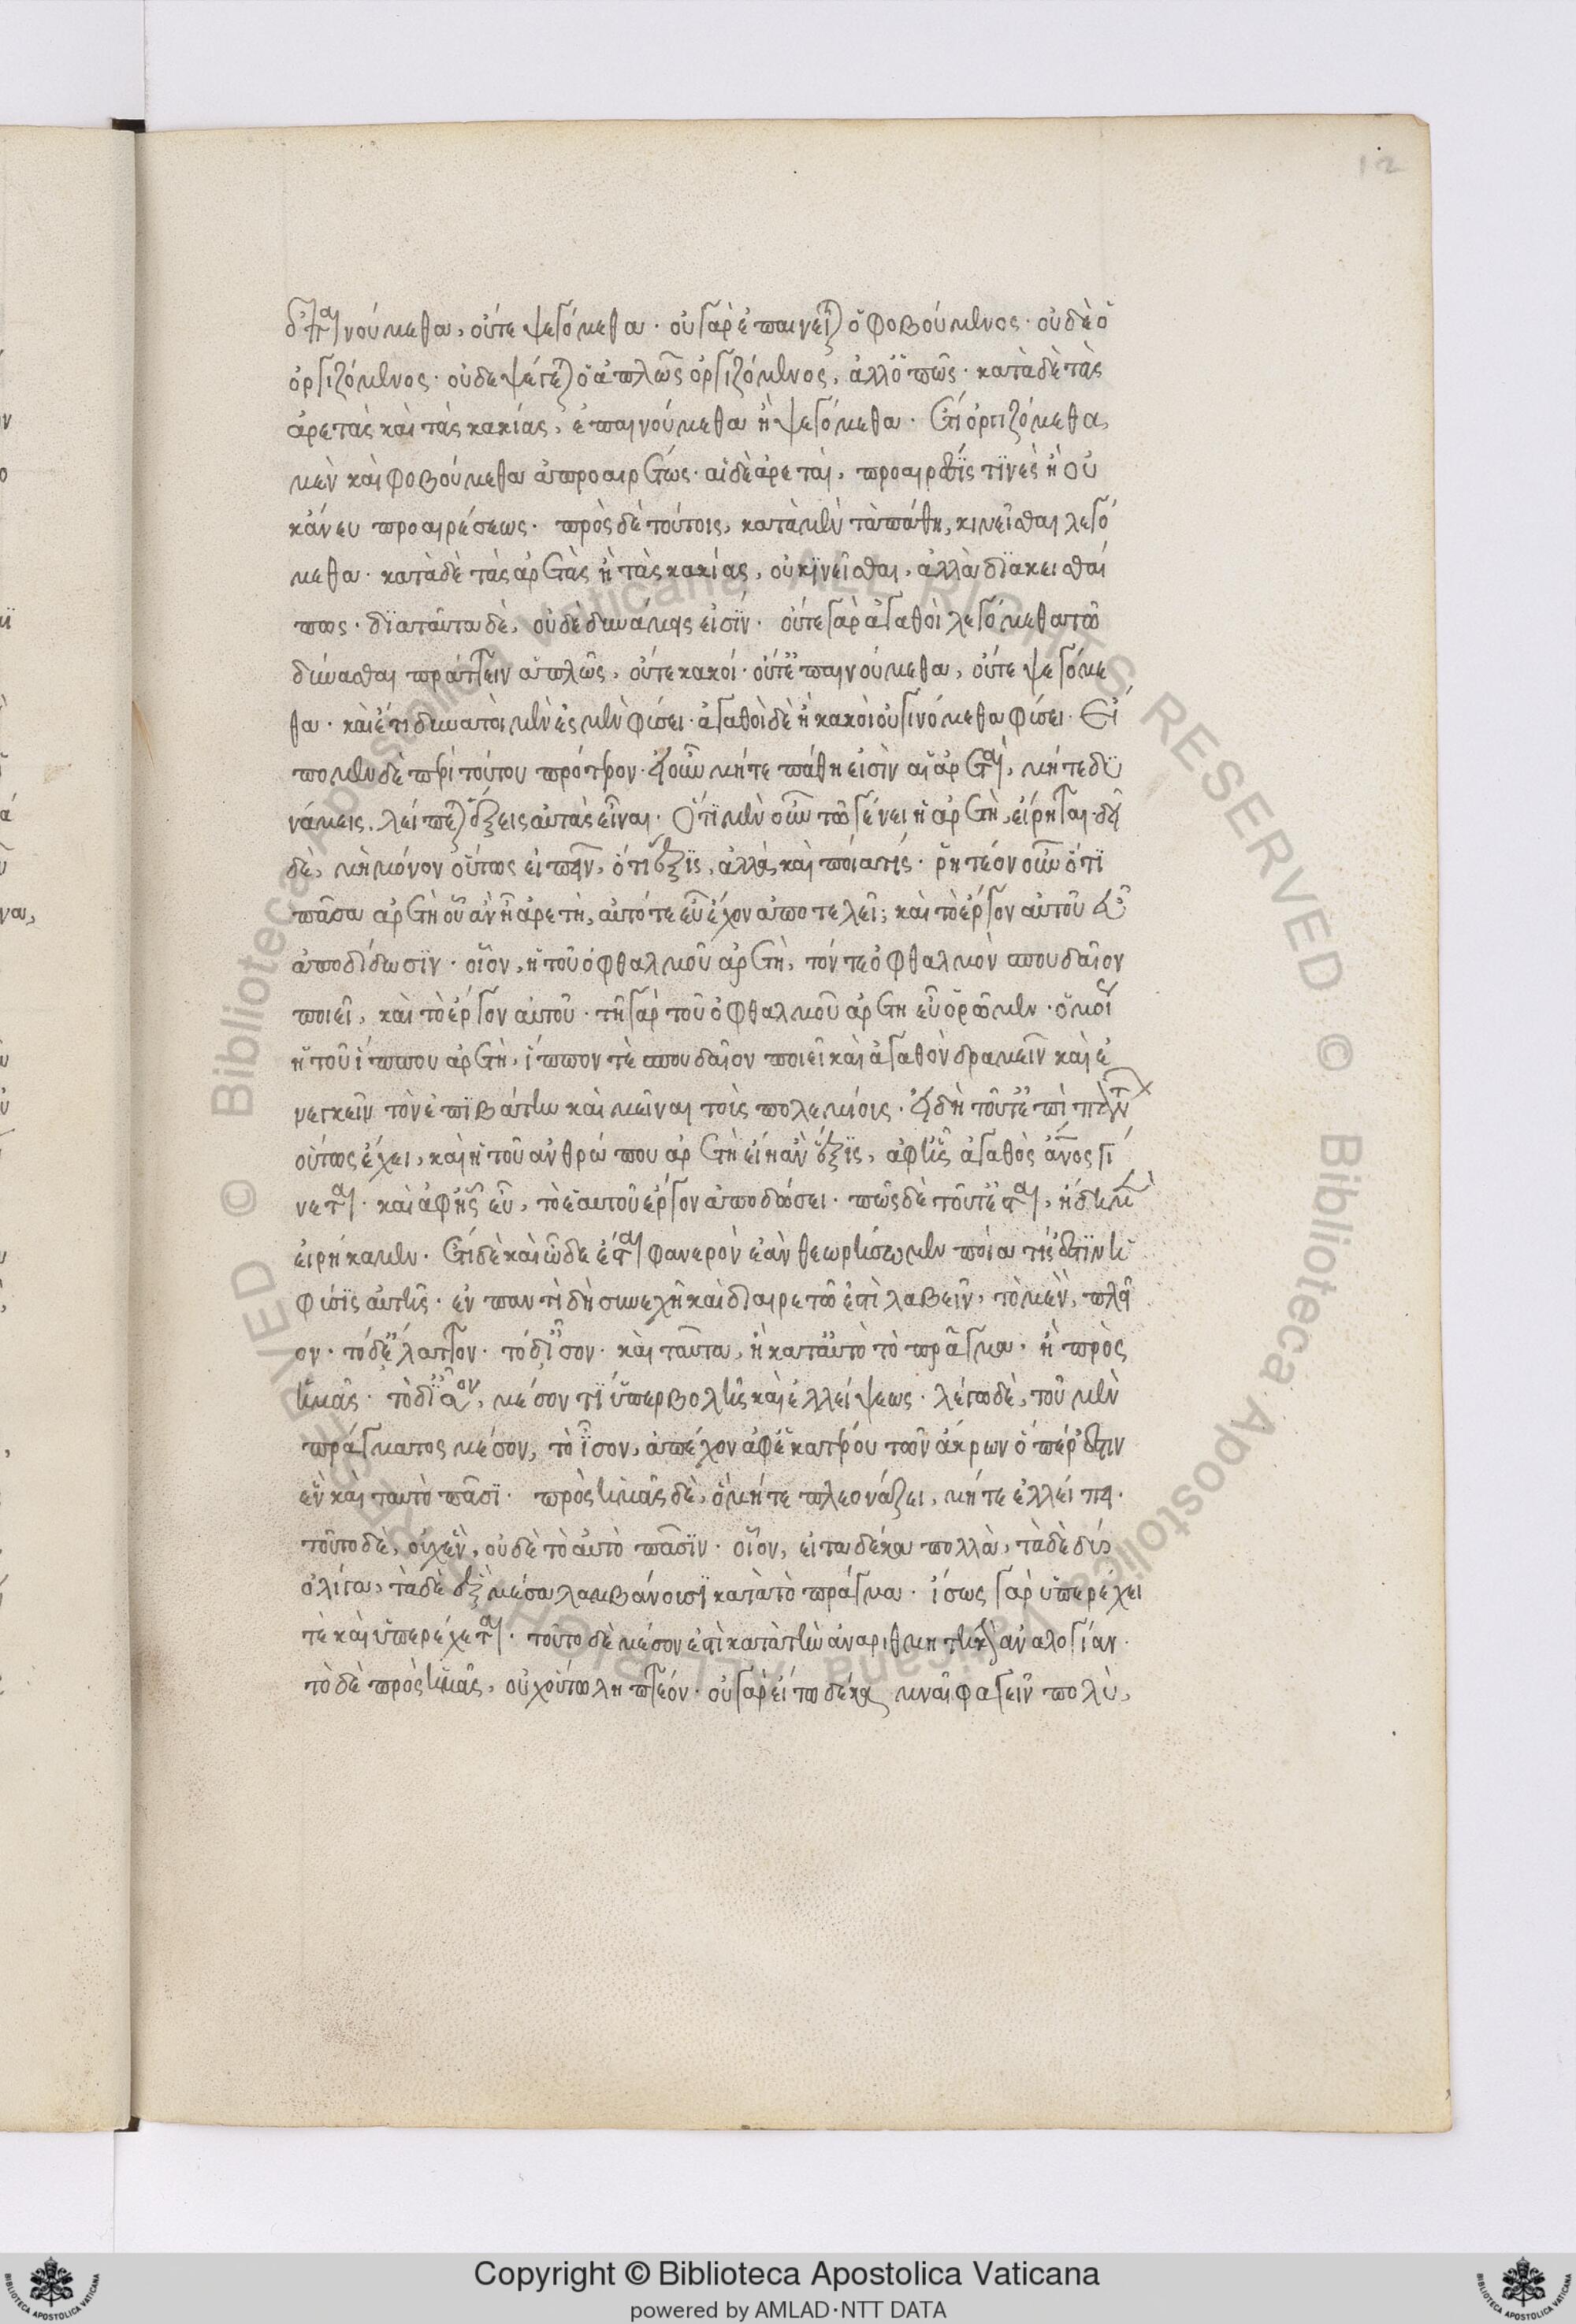 12
ἐπαινούμεθα, οὔτε ψεγόμεθα· οὐ γὰρ ἐπαινεῖται ὁ φοβούμενος· οὐδὲ ὁ
ὀργιζόμενος· οὐδε ψέγεται ὁ ἁπλῶς ὀργιζόμενος, ἀλλ' ὁ πῶς· κατὰ δὲ τὰς
ἀρετὰς καὶ τὰς κακίας, ἐπαινούμεθα ἢ ψεγόμεθα· ἔτι ὀργιζόμεθα
μὲν καὶ φοβούμεθα ἀπροαιρέτως· αἱ δὲ ἀρεταὶ, προαιρέσεις τινὲς ἢ οὐ
κάνευ προαιρέσεως· πρὸς δὲ τούτοις, κατὰ μὲν τὰ πάθη, κινεῖσθαι λεγό
μεθα· κατὰ δὲ τὰς ἀρετὰς ἢ τὰς κακίας, οὐ κινεῖσθαι, ἀλλὰ διακεισθαί
πως· διὰ ταῦτα δὲ, οὐδὲ δυνάμεις εἰσίν· οὔτε γὰρ ἀγαθοὶ λεγόμεθα τῶ
δύνασθαι πράττειν ἁπλῶς, οὔτε κακοί· οὔτ' ἐπαινούμεθα, οὔτε ψεγόμε
θα· καὶ ἔτι δυνατοὶ μὲν ἐσμὲν φύσει· ἀγαθοὶ δὲ ἢ κακοὶ οὐ γινόμεθα φύσει· εἴ
πομεν δὲ περὶ τούτου πρότερον· εἰ οὖν μήτε πάθη εἰσὶν αἱ ἀρεταὶ, μήτε δυ
νάμεις, λείπεται ἕξεις αὐτὰς εἶναι· Ὅτι μὲν οὖν τῶ γένει ἡ ἀρετὴ, εἴρηται· δεῖ
δὲ, μὴ μόνον οὕτως εἰπεῖν, ὅτι ἕξις, ἀλλὰ καὶ ποία τίς· ῥητέον οὖν ὅτι
πᾶσα ἀρετὴ οὗ ἂν ἦ ἀρετὴ, αὐτό τε εὖ ἔχον ἀποτελεῖ, καὶ τὸ ἔργον αὐτοῦ εὖ
ἀποδίδωσιν· οἷον, ἡ τοῦ ὀφθαλμοῦ ἀρετὴ, τόν τε ὀφθαλμὸν σπουδαῖον
ποιεῖ, καὶ τὸ ἔργον αὐτοῦ· τῆ γὰρ τοῦ ὀφθαλμοῦ ἀρετη εὖ ὁρῶμεν· ὁμοί
ἡ τοῦ ἵππου ἀρετὴ, ἵππον τὲ σπουδαῖον ποιεῖ καὶ ἀγαθὸν δραμεῖν καὶ ἐ
νεγκεῖν τὸν ἐπιβάτην καὶ μεῖναι τοὶς πολεμίοις· εἰ δὴ τοῦτ' ἐπὶ πάντων
οὕτως έχει, καὶ ἡ τοῦ ανθρώπου ἀρετὴ εἴη ἂν ἕξις, ἀφ' ἧς ἀγαθὸς ἄνος γί
νεται· καὶ ἀφ' ἧς εὖ, τὸ ἑαυτοῦ ἔργον ἀποδώσει· πῶς δὲ τοῦτ' ἔσται, ἤδη μὲν
εἰρήκαμεν· ἔτι δὲ καὶ ὧδε ἔσται φανερὸν ἐὰν θεωρήσωμεν ποία τίς ἐστὶν ἡ
φύσις αὐτῆς· ἐν παντὶ δὴ συνεχῆ καὶ διαιρετῶ ἐστὶ λαβεῖν, τὸ μὲν, πλεῖ
ον· τὸ δ' ἔλαττον· τὸ δ' ἴσον· καὶ ταῦτα, ἢ κατ' αὐτὸ τὸ πρᾶγμα· ἢ πρὸς
ἡμᾶς· τὸ δ' ἴσον, μέσον τί ὑπερβολῆς καὶ ἐλλείψεως· λέγω δὲ, τοῦ μὲν
πράγματος μέσον, τὸ ἴσον, ἀπέχον ἀφ' ἑκατέρου τῶν ἄκρων ὅπερ ἐστιν
ἓν καὶ ταυτὸ πᾶσι· πρὸς ἡμᾶς δὲ, ὃ μήτε πλεονάζει, μήτε ἐλλείπει·
τοῦτο δὲ, οὐχ ἓν, οὐδὲ τὸ αὐτὸ πᾶσιν· οἷον, εἰ τα δέκα πολλὰ, τὰ δὲ δύο
ὀλίγα, τὰ δὲ ἓξ μέσα λαμβάνουσι κατὰ τὸ πράγμα· ἴσως γάρ ὑπερέχει
τὲ καὶ ὑπερέχεται· τοῦτο δὲ μέσον ἐστὶ κατὰ τὴν ἀναριθμητικὴν ἀναλογίαν·
τὸ δὲ πρὸς ἡμᾶς, οὐχ οὕτω ληπτέον· οὐ γὰρ εἴ τω δέκα μναῖ φαγεῖν πολὺ,